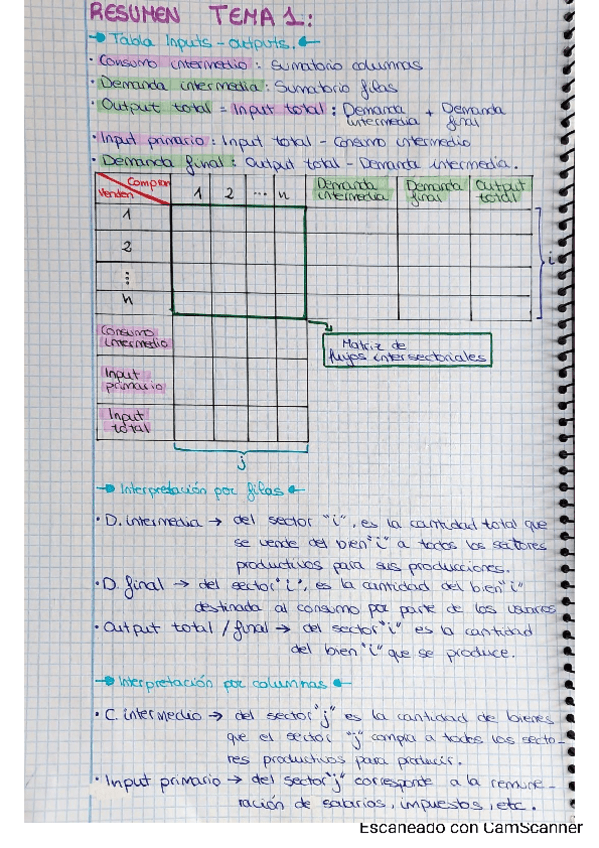 RESUMEN TEMA 1:
Tabla Inputs-outputs.
· Consumo intermedio: Sumatorio columnas
· Demanda intermedia: Sumatorio filas
· Output total = Input total: Demanda intermedia + Demanda final
· Input primario: Input total - Consumo intermedio
· Demanda final: Output total - Demanda intermedia.
Compran Venden 1 2 ... n Demanda intermedia Demanda final Output total
1
2
⋮
n
i
Consumo intermedio
Matriz de
flujos intersectoriales
Input primario
Input total
j
Interpretación por filas
· D. intermedia → del sector "i", es la cantidad total que
se vende del bien "i" a todos los sectores
productivos para sus producciones.
· D. final → del sector "i", es la cantidad del bien "i"
destinada al consumo por parte de los usuarios
· Output total / final → del sector "i" es la cantidad
del bien "i" que se produce.
Interpretación por columnas
· C. intermedio → del sector "j" es la cantidad de bienes
que el sector "j" compra a todos los secto-
res productivos para producir.
· Input primario → del sector "j" corresponde a la remune-
ración de salarios, impuestos, etc.
Escaneado con CamScanner